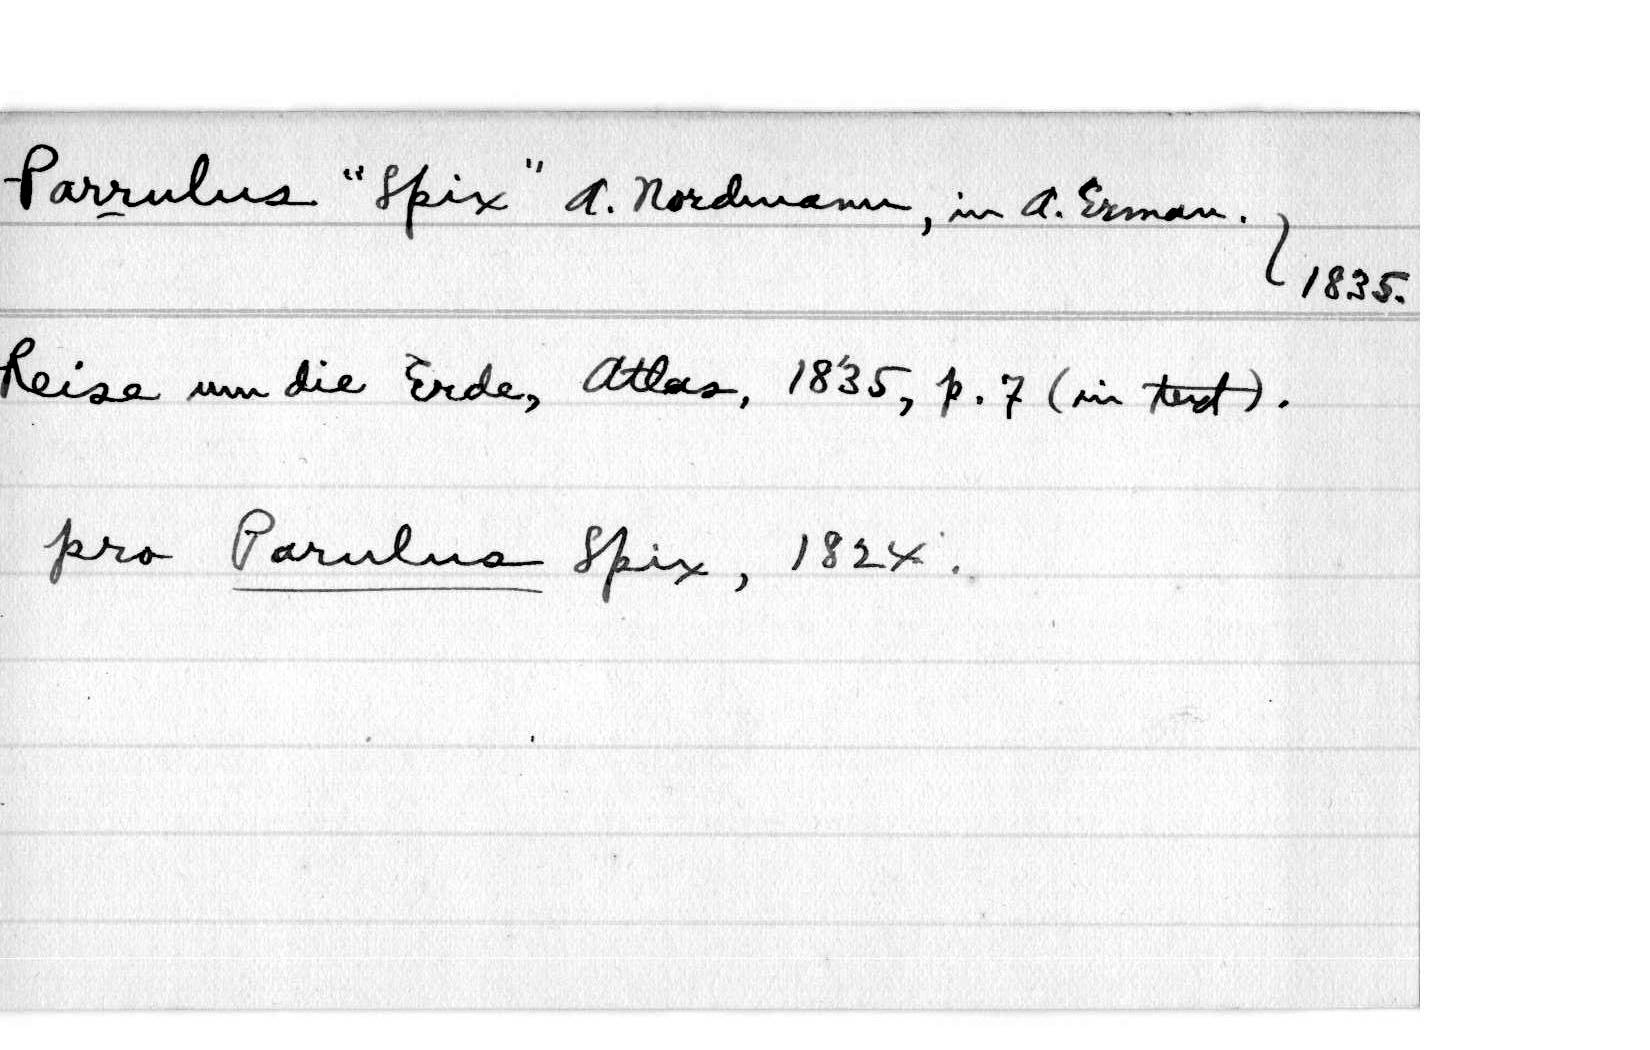 Parrulus "Spix" A. Nordmann, in A. Erman.
1835.
Reise um die Erde, Atlas, 1835, p. 7 (in text).
pro Parulus Spix, 1824.